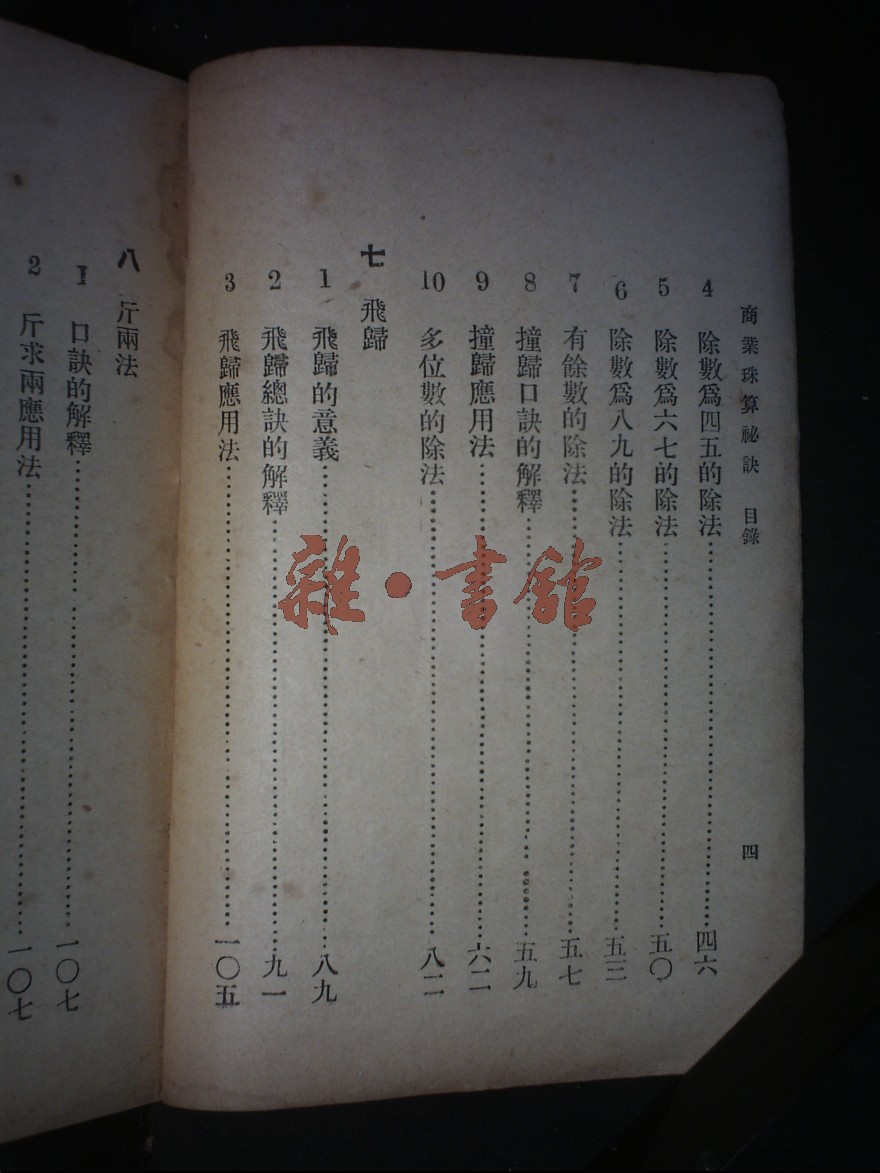 商業珠算祕訣 目錄 四
4 除數爲四五的除法……四六
5 除數爲六七的除法……五〇
6 除數爲八九的除法……五三
7 有餘數的除法……五七
8 撞歸口訣的解釋……五九
9 撞歸應用法……六二
10 多位數的除法……八二
七 飛歸
1 飛歸的意義……八九
2 飛歸總訣的解釋……九一
3 飛歸應用法……一〇五
八 斤兩法
1 口訣的解釋……一〇七
2 斤求兩應用法……一〇七
雜·書館